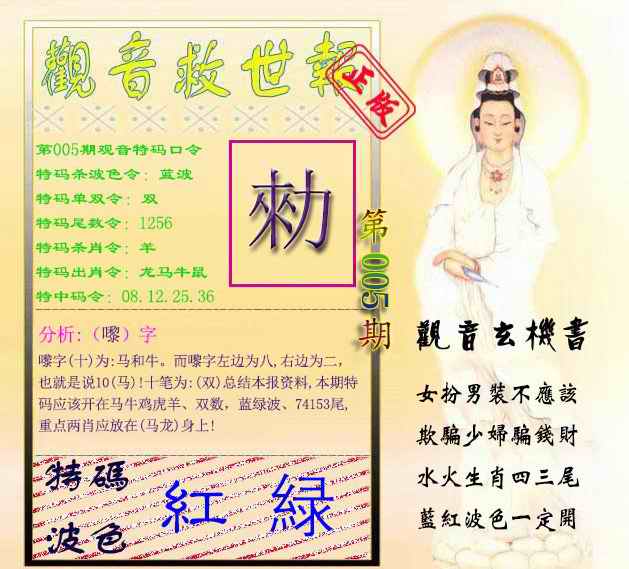 觀音救世報
正版
第005期观音特码口令
特码杀波色令：蓝波
特码单双令：双
特码尾数令：1256
特码杀肖令：羊
特码出肖令：龙马牛鼠
特中码令：08.12.25.36
勑
第005期
分析:（嚟）字
嚟字(十)为:马和牛。而嚟字左边为八,右边为二,
也就是说10(马)!十笔为:(双)总结本报资料,本期特
码应该开在马牛鸡虎羊、双数，蓝绿波、74153尾,
重点两肖应放在(马龙)身上!
特碼
波色
紅 緑
觀音玄機書
女扮男裝不應該
欺騙少婦騙錢財
水火生肖四三尾
藍紅波色一定開